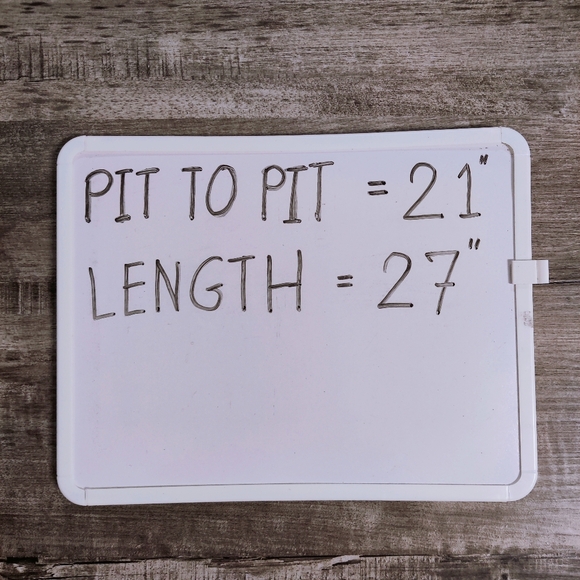 PIT TO PIT = 21"
LENGTH = 27"